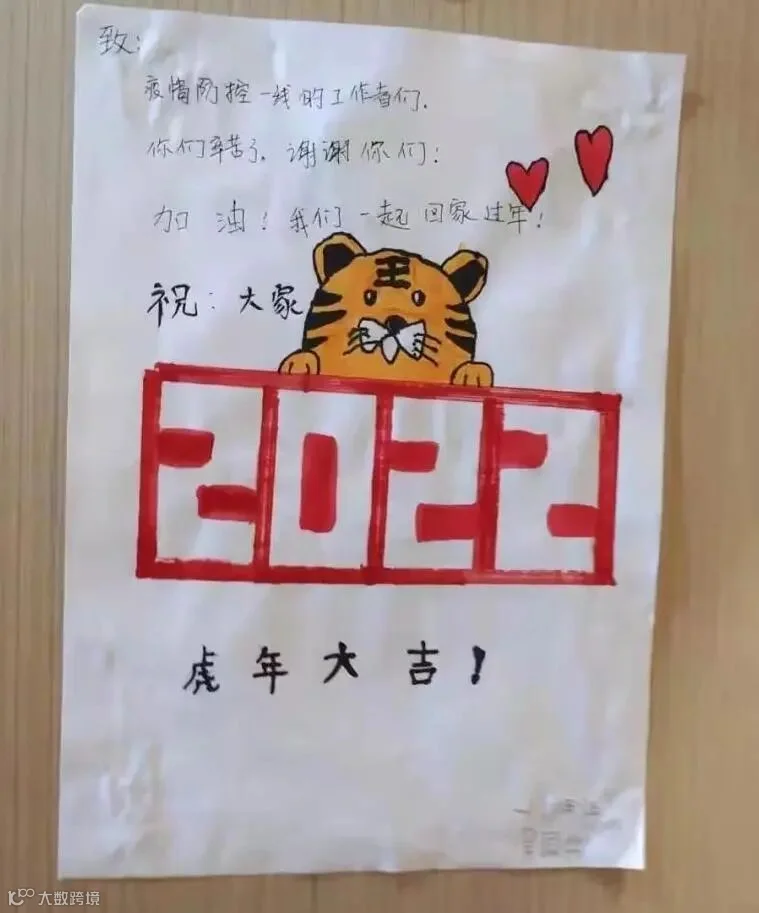 致:
疫情防控一线的工作者们.
你们辛苦了.谢谢你们!
加油!我们一起回家过年!
祝:大家
王
2022
虎年大吉!
大数跨境